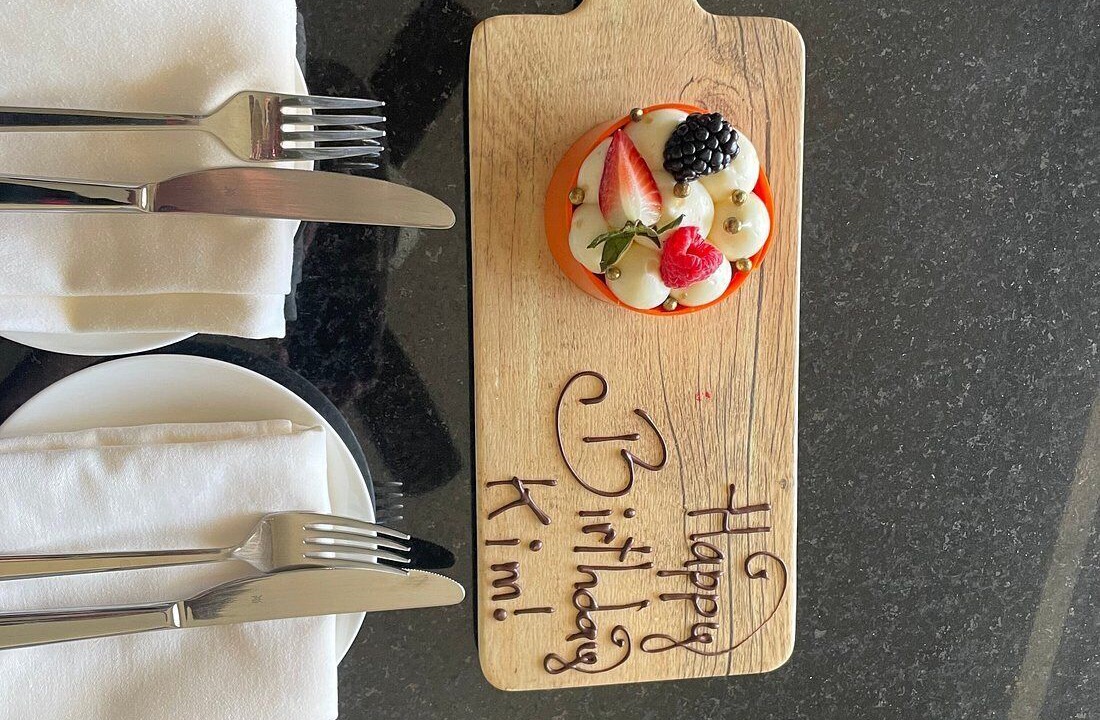 Happy
Birthday
Kim!